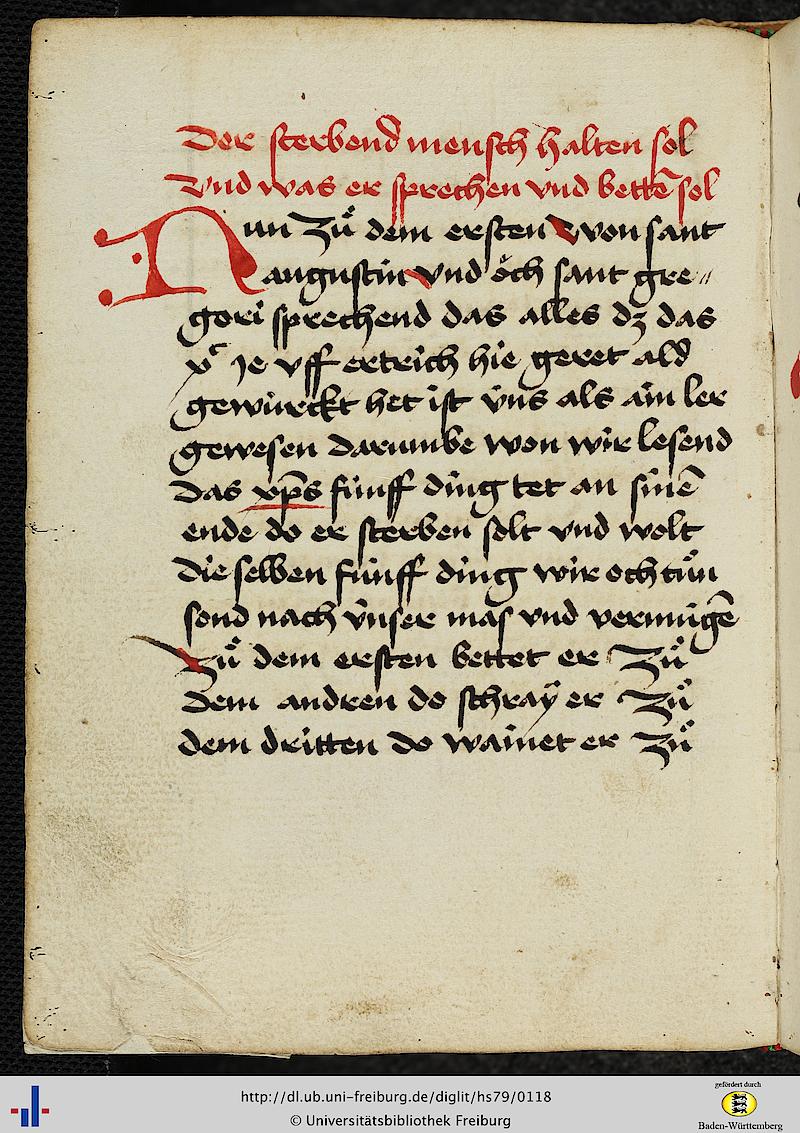 Der sterbend mensch halten sol
Vnd was er sprechen vnd bettē sol
Nun zů dem ersten won sant
augustin vnd öch sant gre〃
gori sprechend das alles dꝫ das
je vff ertrich hie geret ald
gewürckt het ist v̈ns als ain ler
gewesen darumbe won wir lesend
das xp̄s fünff ding tet an sinē
ende do er sterben solt vnd wolt
die selben fünff ding wir och tůn
sond nach v̈nser mas vnd vermügē
Zů dem ersten bettet er Zů
dem andren do schraÿ er Zů
dem dritten do wainet er Zů
http://dl.ub.uni-freiburg.de/diglit/hs79/0118
© Universitätsbibliothek Freiburg
gefördert durch
Baden-Württemberg